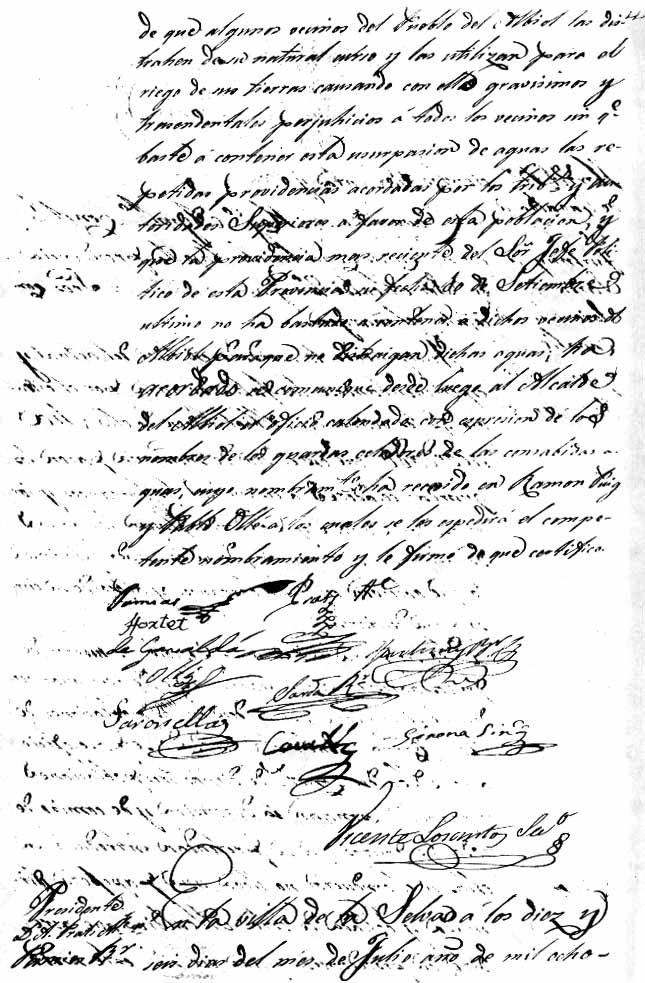 de que algunos vecinos del Pueblo del Albiol las dis-
trahen de su natural curso y las utilizan para el
riego de sus tierras causando con ello gravisimos y
trasendentales perjuhicios á todos los vecinos sin qe
baste á contener esta usurpasion de aguas las re-
petidas providencias acordadas por los Tribs y au
toridades Superiores a favor de esta poblacion, y
que la providencia mas reciente del Sor Jefe Poli
tico de esta Provincia su fecha 30 de Setiembre
ultimo no ha bastado a contener a dichos vecinos de
Albiol para que no distraigan dichas aguas, ha
acordado se comunique desde luego al Alcalde
del Albiol oficio calendado con espresion de los
nombres de los guardas celadores de las consabidas a-
guas, cuyo nombramto ha recaido en Ramon Puig
y Pablo Ollé a los cuales se les espedirá el compe-
tente nombramiento y le firmé de que certifico
Pamies Prats Ale
Hortet
Ollé
Vicente Lorento Seco
Presidente En la villa de la Selva a los diez y
seis dias del mes de Julio año de mil ocho-